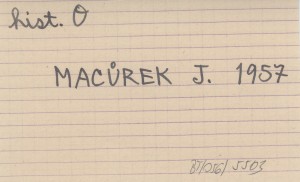 hist. O
MACŮREK J. 1957
87/056/5503